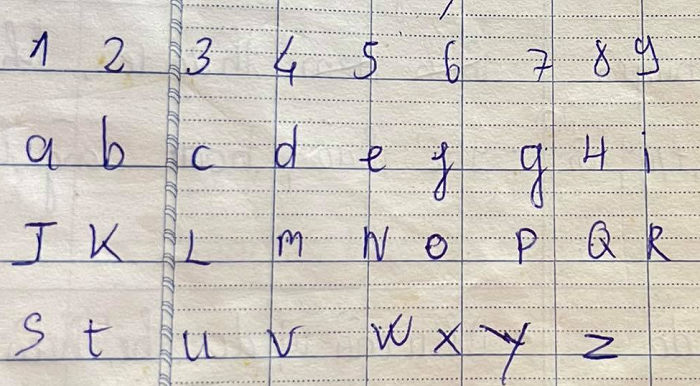 1 2 3 4 5 6 7 8 9
a b c d e f g H i
J K L m N O P Q R
S t u v W x y z